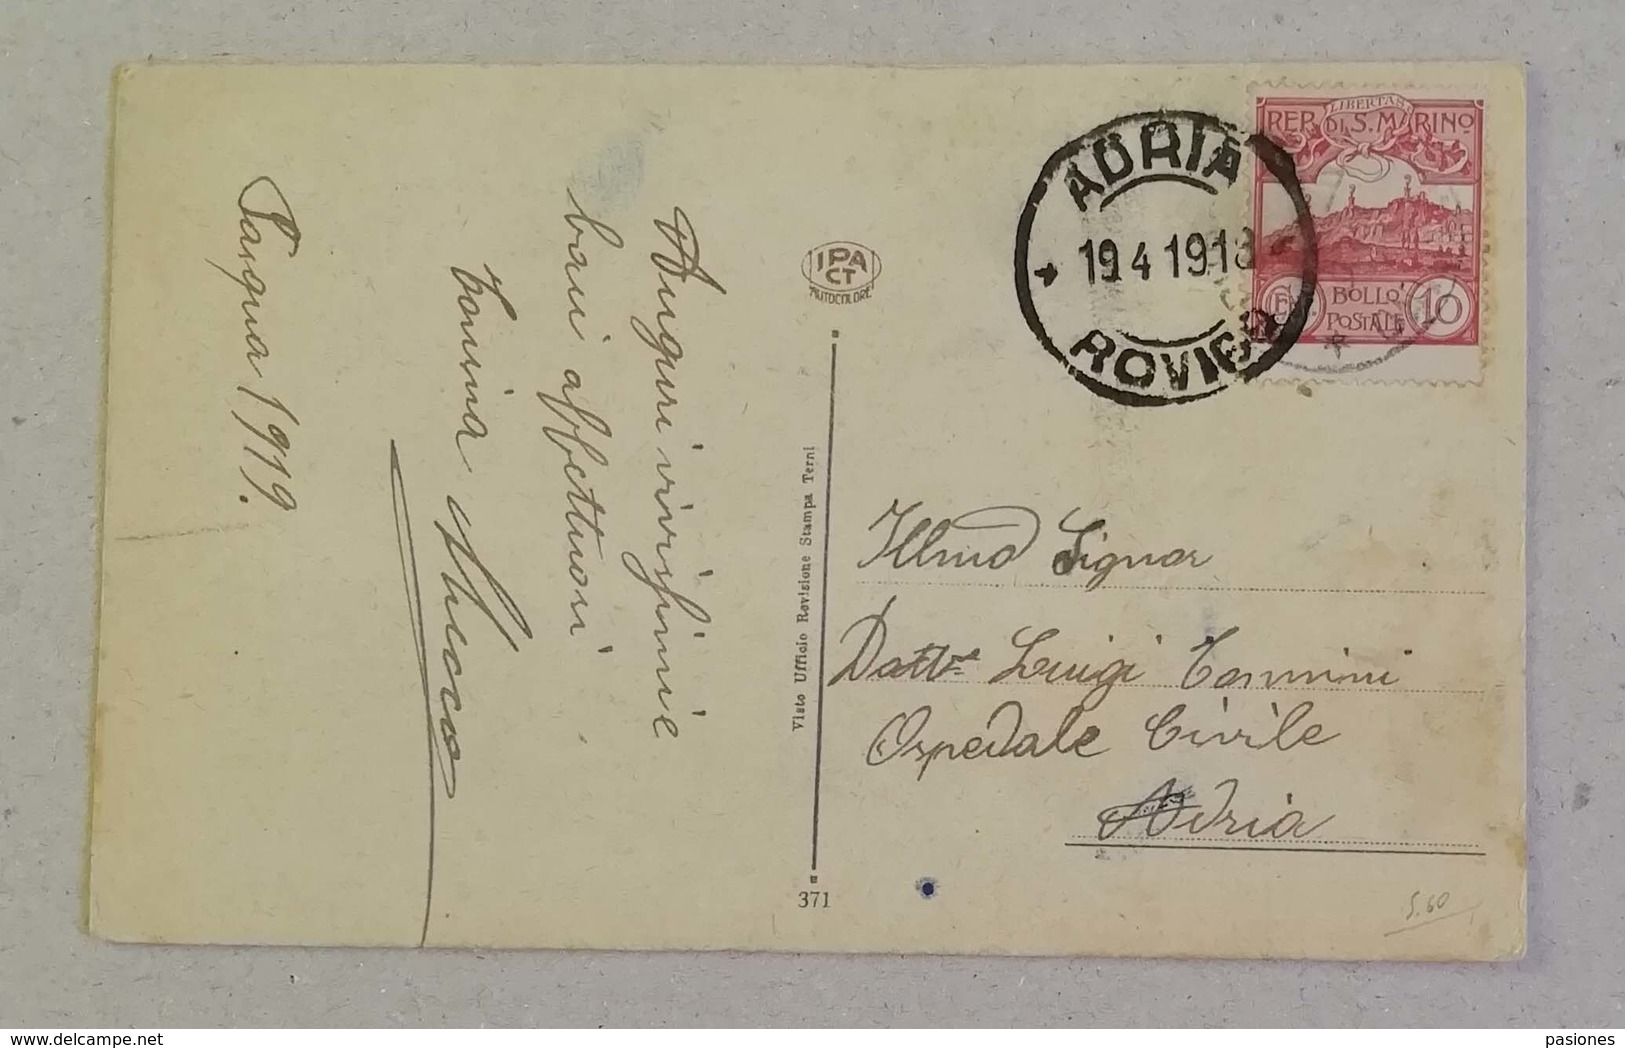 Auguri vivissimi e
baci affettuosi
Pasqua 1919.
IPA
CT
AUTOCOLORE
Visto Ufficio Revisione Stampa Terni
371
ADRIA
19 4 1918
ROVIGO
LIBERTAS
REP. DI S. MARINO
BOLLO
POSTALE
10
Illmo Signor
Dottr Luigi
Ospedale Civile
Adria
5.60
pasiones
www.delcampe.net